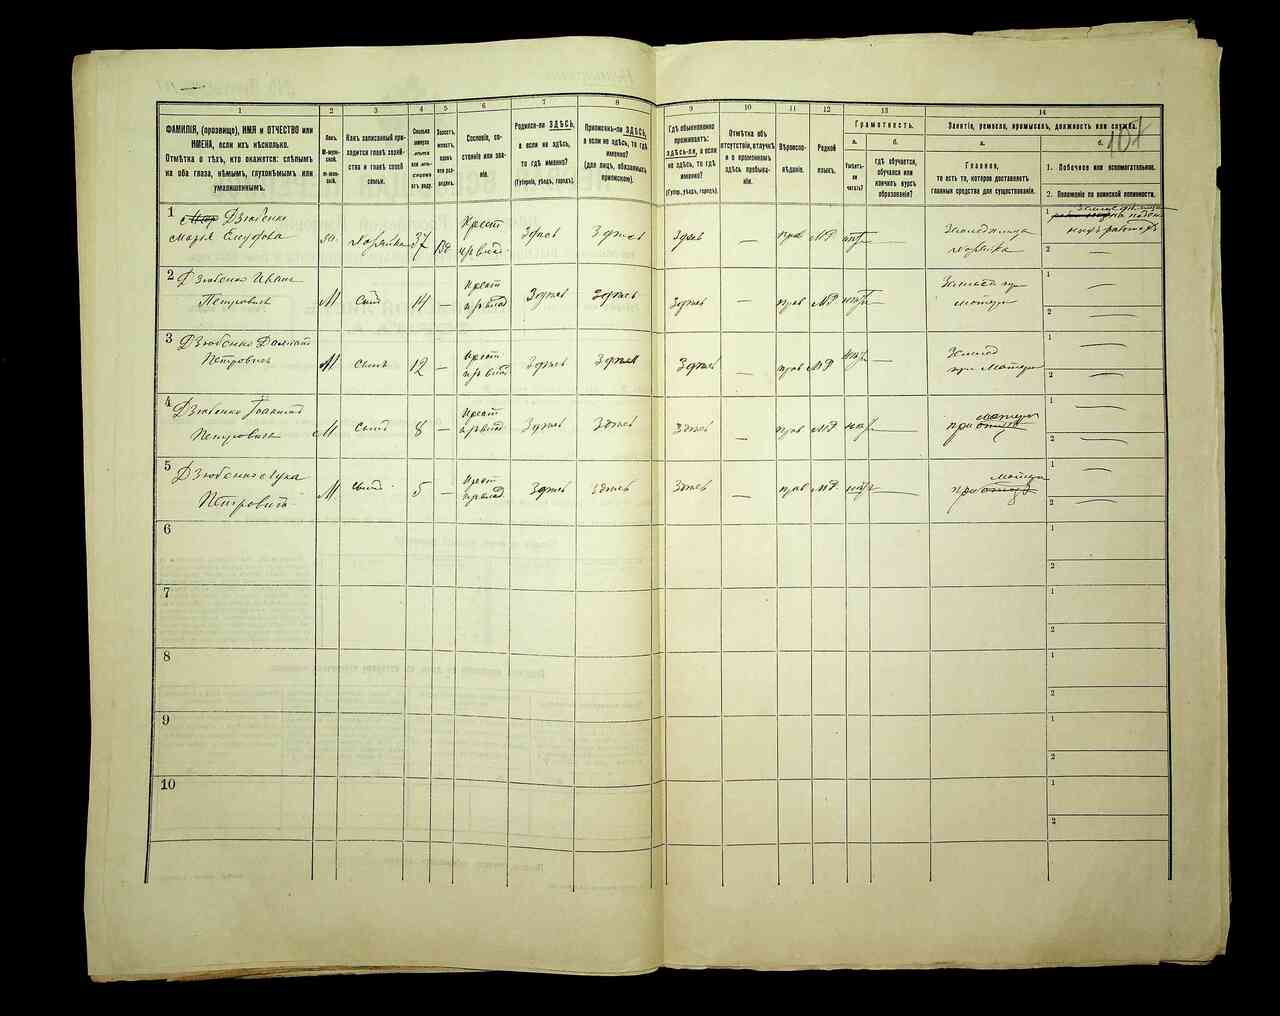 107
1
2
3
4
5
6
7
8
9
10
11
12
13
14
ФАМИЛІЯ, (прозвище), ИМЯ и ОТЧЕСТВО или
ИМЕНА, если ихъ нѣсколько.
Отмѣтка о тѣхъ, кто окажется: слѣпымъ
на оба глаза, нѣмымъ, глухонѣмымъ или
умалишеннымъ.
Полъ.
М-муж-
ской.
Ж-жен-
скій.
Какъ записанный при-
ходится главѣ хозяй-
ства и главѣ своей
семьи.
Сколько
минуло
лѣтъ
или мѣ-
сяцевъ
отъ роду.
Холостъ,
женатъ,
вдовъ
или раз-
веденъ.
Сословіе, со-
стояніе или зва-
ніе.
Родился-ли ЗДѢСЬ,
а если не здѣсь,
то гдѣ именно?
(Губернія, уѣздъ, городъ).
Приписанъ-ли ЗДѢСЬ,
а если не здѣсь, то гдѣ
именно?
(для лицъ, обязанныхъ
припискою).
Гдѣ обыкновенно
проживаетъ:
здѣсь-ли, а если
не здѣсь, то гдѣ
именно?
(Губерн., уѣздъ, городъ).
Отмѣтка объ
отсутствіи, отлучкѣ
и о временномъ
здѣсь пребыва-
ніи.
Вѣроиспо-
вѣданіе.
Родной
языкъ.
Грамотность.
а.
б.
Умѣетъ-
ли
читать?
гдѣ обучается,
обучался или
кончилъ курсъ
образованія?
Занятіе, ремесло, промыселъ, должность или служба.
а.
б.
Главное,
то есть то, которое доставляетъ
главныя средства для существованія.
1. Побочное или вспомогательное.
2. Положеніе по воинской повинности.
1 Дзюбенко
Марія
Хозяйка 37
Крест
Здѣсь Здѣсь Здѣсь — прав МР нѣт —
1
2 —
2 Дзюбенко Иванъ
Петровичъ М Сынъ 14 —
Крест
Здѣсь Здѣсь Здѣсь — прав МР нѣт —
при
матери
1 —
2 —
3 Дзюбенко
Петровичъ М Сынъ 12 —
Крест
Здѣсь Здѣсь Здѣсь — прав МР нѣт —
при матери
1 —
2 —
4 Дзюбенко
Петровичъ М Сынъ 8 —
Крест
Здѣсь Здѣсь Здѣсь — прав МР нѣт —
матери
при отцѣ
1 —
2 —
5 Дзюбенко Лука
Петровичъ М Сынъ 5 —
Крест
Здѣсь Здѣсь Здѣсь — прав МР нѣт —
матери
при отцѣ
1 —
2 —
6
1
2
7
1
2
8
1
2
9
1
2
10
1
2